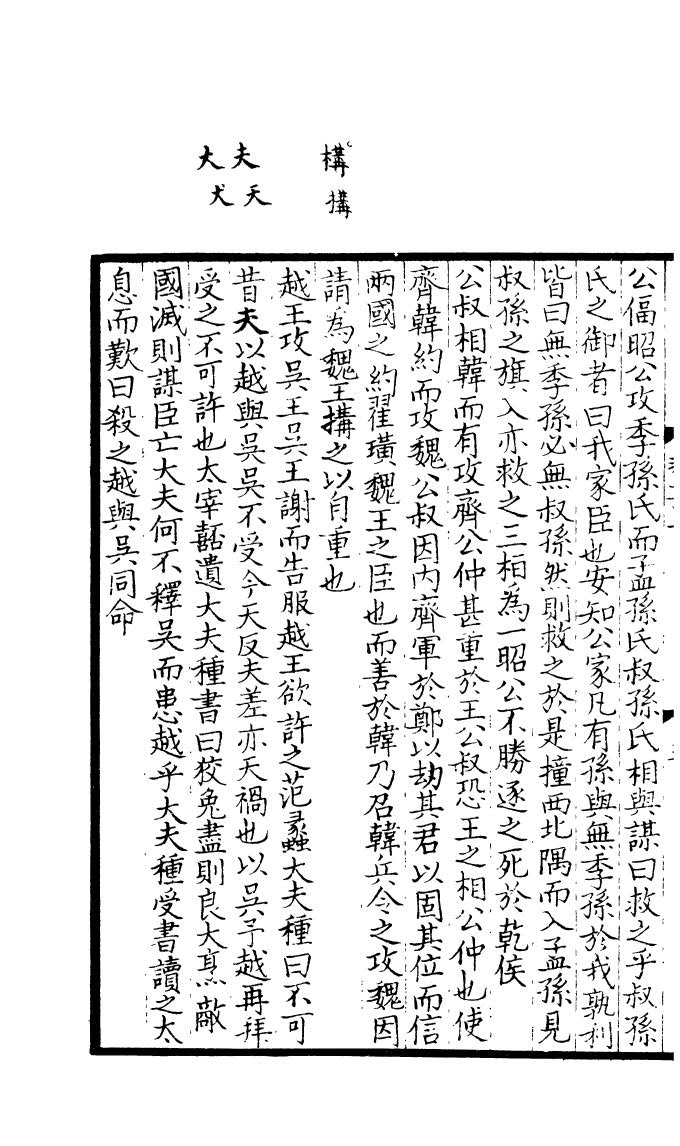 構 搆
夫 天
大 犬
公偪昭公攻季孫氏而孟孫氏叔孫氏相與謀曰救之乎叔孫
氏之御者曰我家臣也安知公家凡有孫與無季孫於我孰利
皆曰無季孫必無叔孫然則救之於是撞西北隅而入孟孫見
叔孫之旗入亦救之三相為一昭公不勝逐之死於乾侯
公叔相韓而有攻齊公仲甚重於王公叔恐王之相公仲也使
齊韓約而攻魏公叔因內齊軍於鄭以劫其君以固其位而信
兩國之約翟璜魏王之臣也而善於韓乃召韓兵令之攻魏因
請為魏王搆之以自重也
越王攻吳王吳王謝而告服越王欲許之范蠡大夫種曰不可
昔夫以越與吳吳不受今天反夫差亦天禍也以吳予越再拜
受之不可許也太宰嚭遺大夫種書曰狡兔盡則良大烹敵
國滅則謀臣亡大夫何不釋吳而患越乎大夫種受書讀之太
息而歎曰殺之越與吳同命